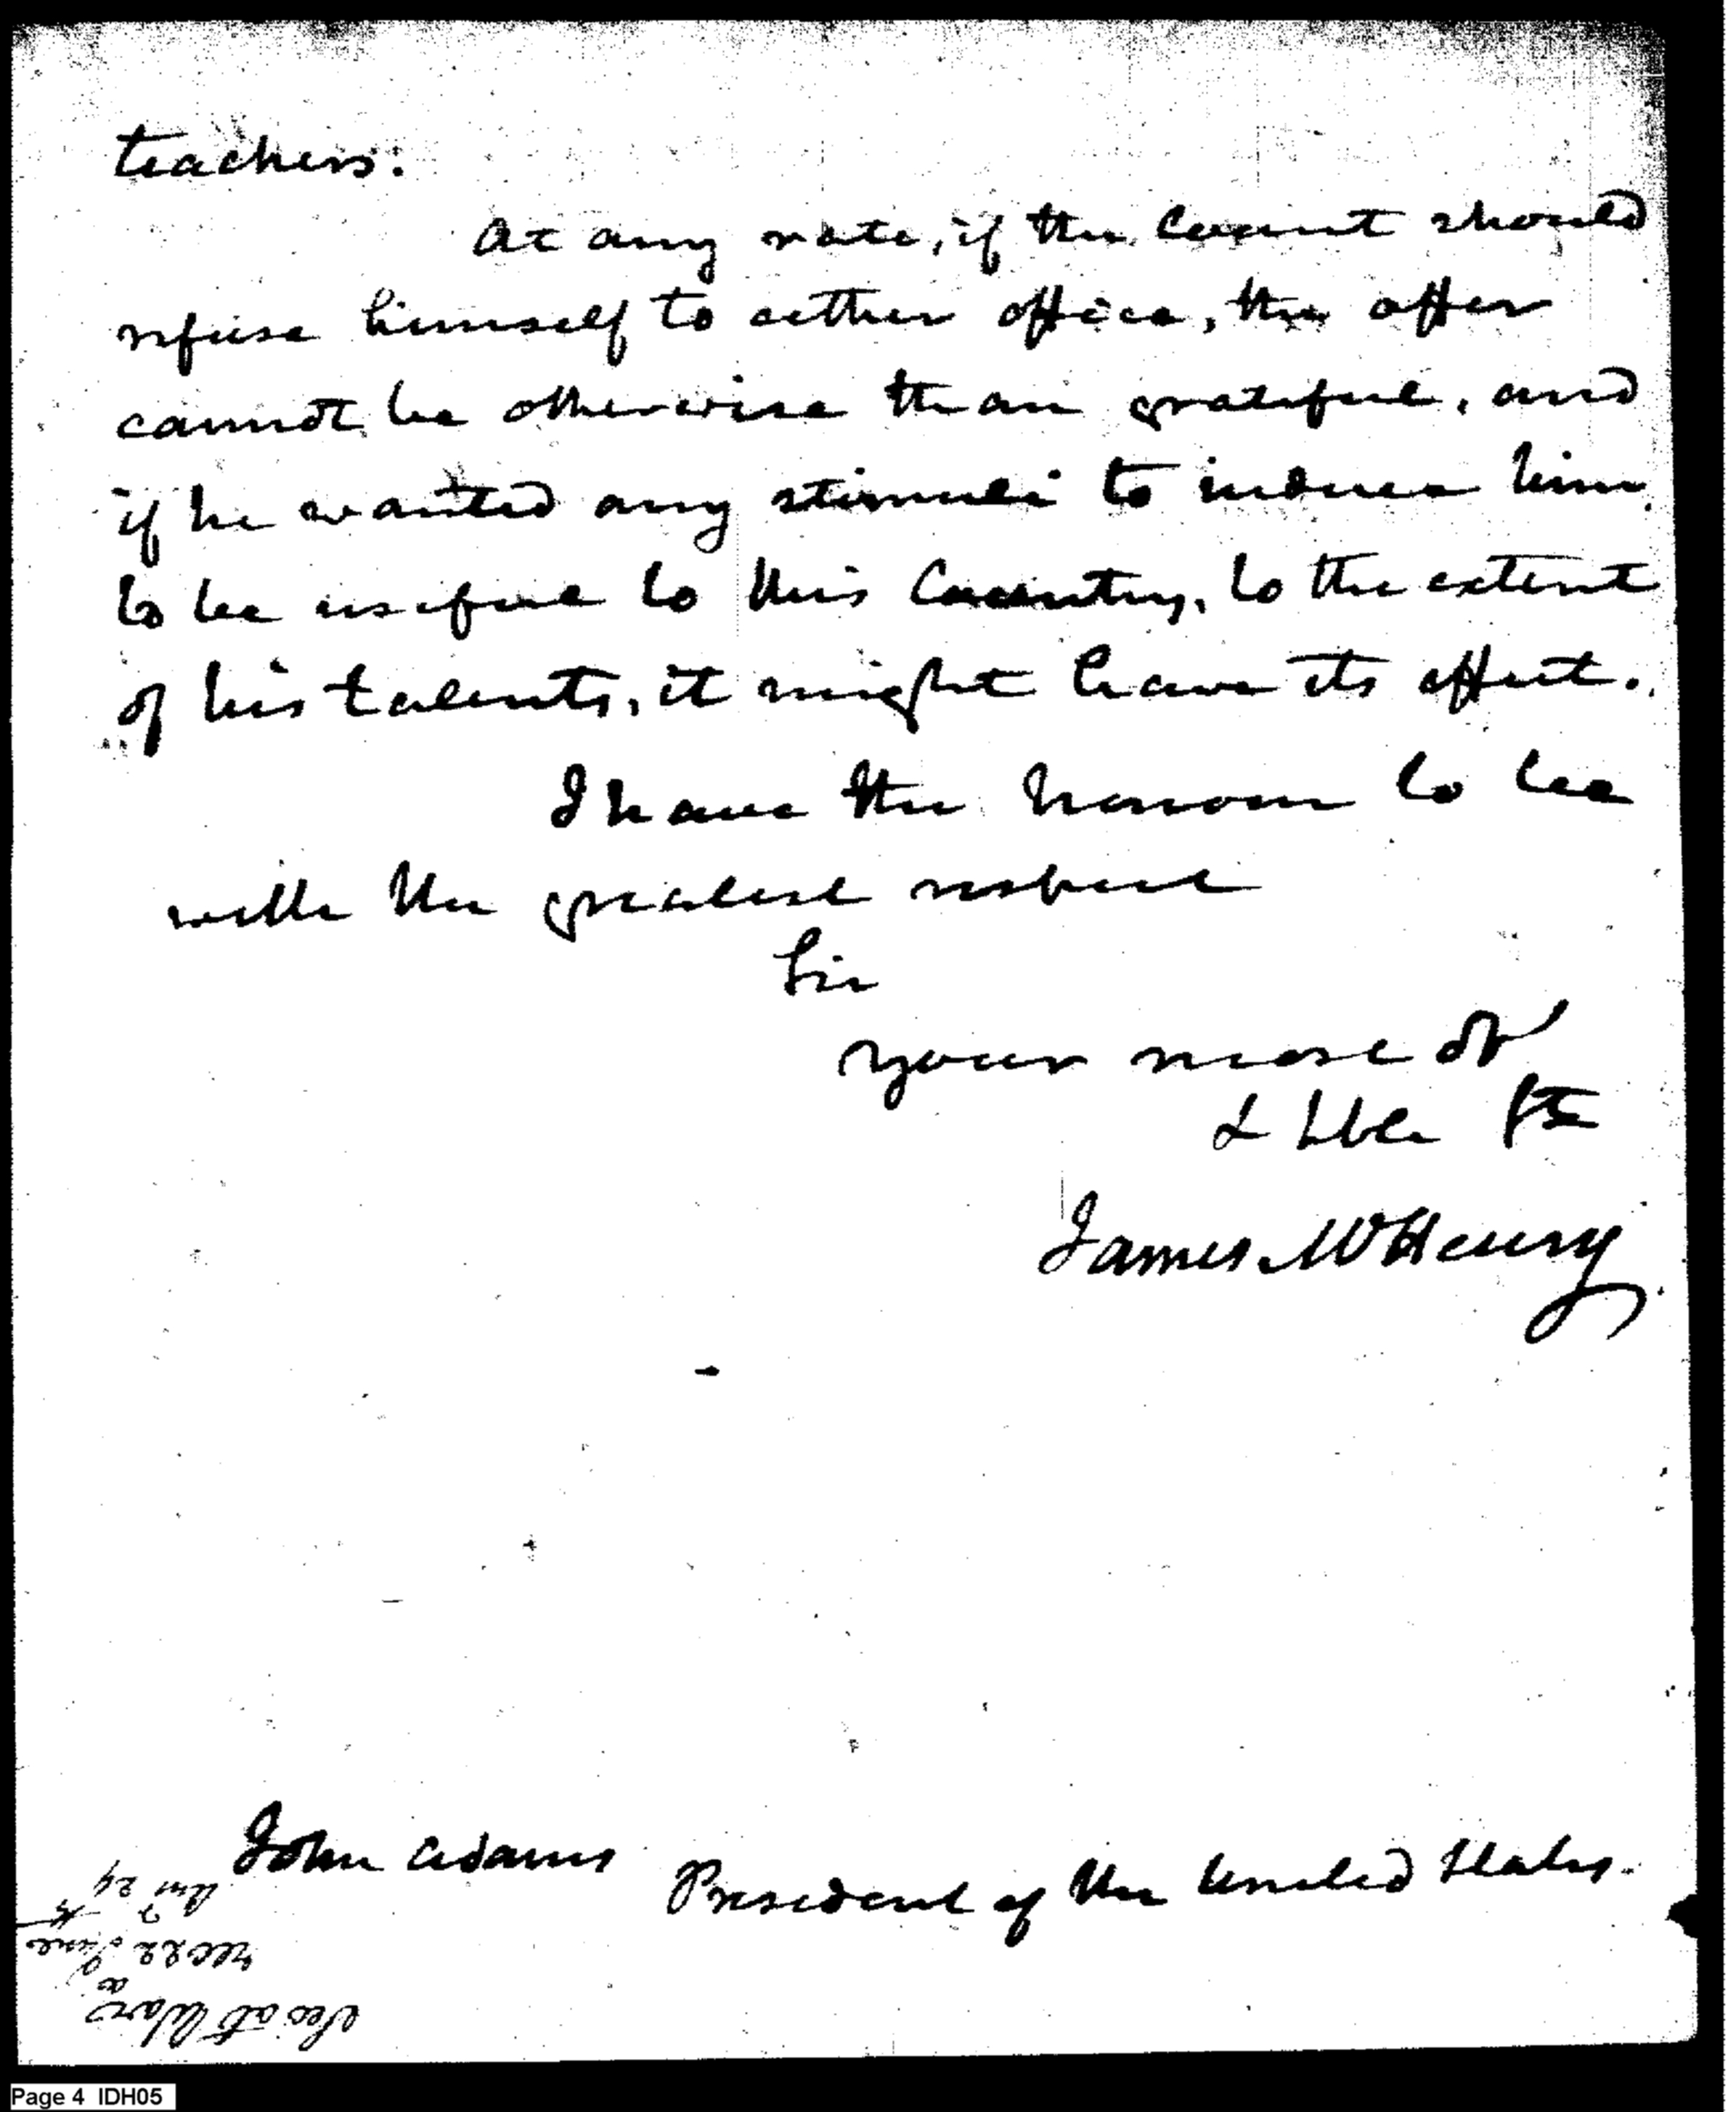 teachers.
At any rate, if the Count should
refuse himself to either office, the offer
cannot be otherwise than grateful, and
if he wanted any stimuli to induce him
to be useful to this Country, to the extent
of his talents, it might have its effect.
I have the honour to be
with the greatest respect
Sir
your most obt
& hble st
James McHenry
John Adams President of the United States.
Sec at War
rec 22 June
ansd 24
Page 4 IDH05